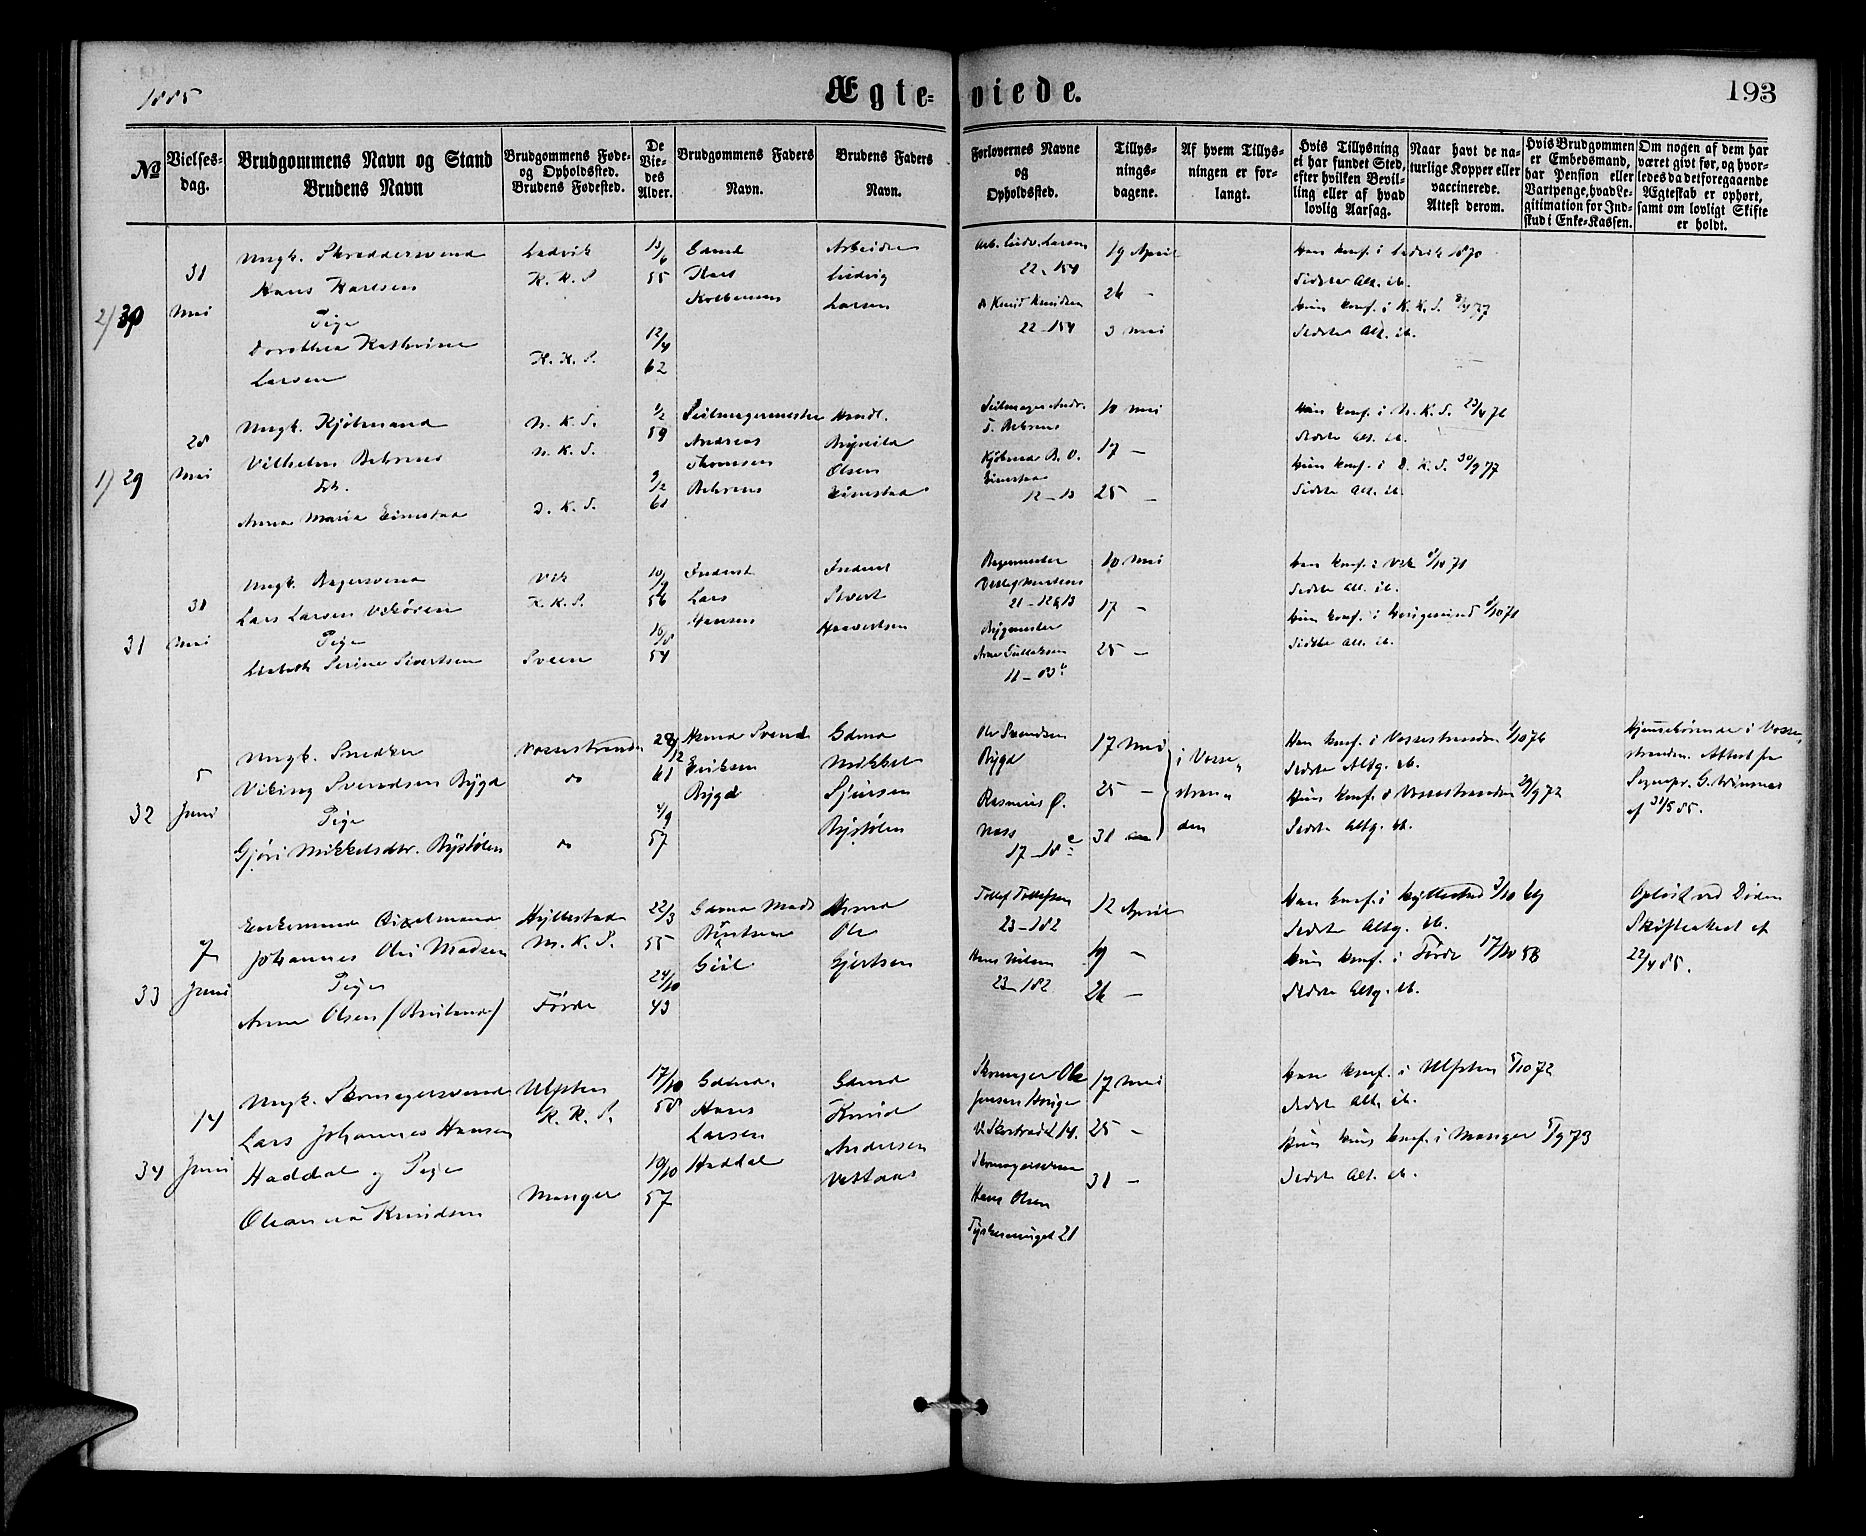 1885
Ægte-viede.
193
№
Vielses-dag.
Brudgommens Navn og Stand
Brudens Navn
Brudgommens Føde- og Opholdssted.
Brudens Fødested.
De Vie-des Alder.
Brudgommens Faders Navn.
Brudens Faders Navn.
Forlovernes Navne og Opholdssted.
Tillys-nings-dagene.
Af hvem Tillys-ningen er for-langt.
Hvis Tillysning ei har fundet Sted, efter hvilken Bevil-ling eller af hvad lovlig Aarsag.
Naar havt de na-turlige Kopper eller vaccinerede. Attest derom.
Hvis Brudgommen er Embedsmand, har Pension eller Vartpenge, hvad Le-gitimation for Ind-skud i Enke-Kassen.
Om nogen af dem har været givt før, og hvor-ledes da det foregaaende Ægteskab er ophørt, samt om lovligt Skifte er holdt.
2) 30
31 Mai
Ungk. Skreddersvend
Hans Karlsen
Pige
Dorothea Kathrine
Larsen
Ladvik
K. K. S.
K. K. S.
55
12/4
62
Arbeider
Ludvig
Larsen
Arb. Ludv. Larsen
22-154
Knud Knudsen
22-154
19 April
26 -
3 Mai
Han konf. i Ladvik 1870
Sidste Alt. ib.
Hun konf. i K. K. S. 77
Sidste Alt. ib.
1) 29
28 Mai
Ungk. Kjøbmand
Vilhelm Behrens
Frk.
Anna Maria Eimstad
N. K. S.
N. K. S.
D. K. S.
59
Seilmagermester
Andreas
Thomsen
Behrens
Handl.
Brynild
Olsen
Eimstad
Seilmager Andr.
T. Behrens
Kjøbmd B. O.
Eimstad
12-13
10 Mai
17 -
25 -
Han konf. i N. K. S. 23/4 76
Sidste Alt. ib.
Hun konf. i D. K. S. 30/9 77
Sidste Alt. ib.
31
31 Mai
Ungk. Bagersvend
Lars Larsen Vikøren
Pige
Lisbeth Serine Sivertsen
Vik
K. K. S.
Sveen
10/9
56
16/8
54
Inderst
Lars
Hansen
Inderst
Sivert
Haavertsen
Bagermester
21-12 & 13
Bygmester
Arne Gullaksen
10 Mai
17 -
25 -
Han konf. i Vik 1/10 71
Sidste Alt. ib.
Sidste Alt. ib.
32
5 Juni
Ungk. Snedker
Viking Svendsen Bygd
Pige
Gjøri Mikkelsdtr. Bystølen
Vossestranden
do
do
61
4/9
57
Husmd Svend
Eriksen
Bygd
Gdmd
Mikkel
Sjursen
Bystølen
Ole Svendsen
Bygd
Rasmus Ø.
Næss
17-18 c
17 Mai
25 -
31
i Vosse-
stran-
den
Han konf. i Vossestranden 1/10 76
Sidste Altg. ib.
Hun konf. i Vossestranden 29/9 72
Sidste Altg. ib.
Hjemmehørende i Vosse-
stranden. Attest fra
Sognepr.
af 31/5 85.
33
7 Juni
Enkemand
Johannes Olai Madsen
Pige
Anna Olsen (Bruland)
Hyllestad
N. K. S.
Førde
22/3
55
24/10
43
Gdmd Mads
Bentsen
Husmd
Ole
Gjertsen
Tollef Tollefsen
23-182
Hans Nilsen
23-182
12 April
19 -
26 -
Han konf. i Hyllestad 3/10 69
Sidste Altg. ib.
Hun konf. i Førde 17/10 58
Sidste Altg. ib.
Opløst ved Døden
Skifteattest af
22/4 85.
34
14 Juni
Ungk. Skomagersvend
Lars Johannes Hansen
Haddal og Pige
Oleanna Knudsen
Ulfsten
K. K. S.
Manger
17/10
58
19/10
57
Gdmd.
Hans
Larsen
Haddal
Gdmd
Knud
Andersen
Vettaas
Skomager Ole
Jensen Hauge
V. Skostræde 14.
Skomagersvend
Hans Olsen
Tyskesmuget 21
17 Mai
25 -
31 -
Han konf. i Ulfsten 5/10 72
Sidste Alt. ib.
Hun konf. i Manger 5/9 73
Sidste Alt. ib.